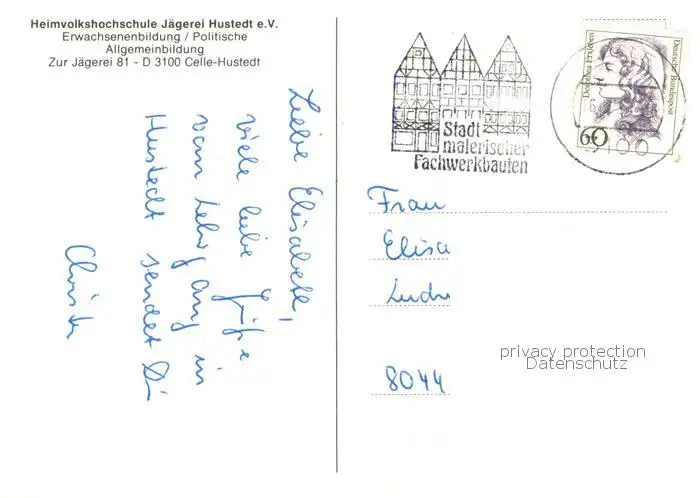 Heimvolkshochschule Jägerei Hustedt e.V.
Erwachsenenbildung / Politische
Allgemeinbildung
Zur Jägerei 81 - D 3100 Celle-Hustedt
Liebe Elisabeth,
viele liebe Grüße
vom Lehrgang in
Hustedt sendet Dir
Christa
Stadt
malerischer
Fachwerkbauten
Dorothea Erxleben
Deutsche Bundespost
60
3100
Frau
Elisa
8044
privacy protection
Datenschutz